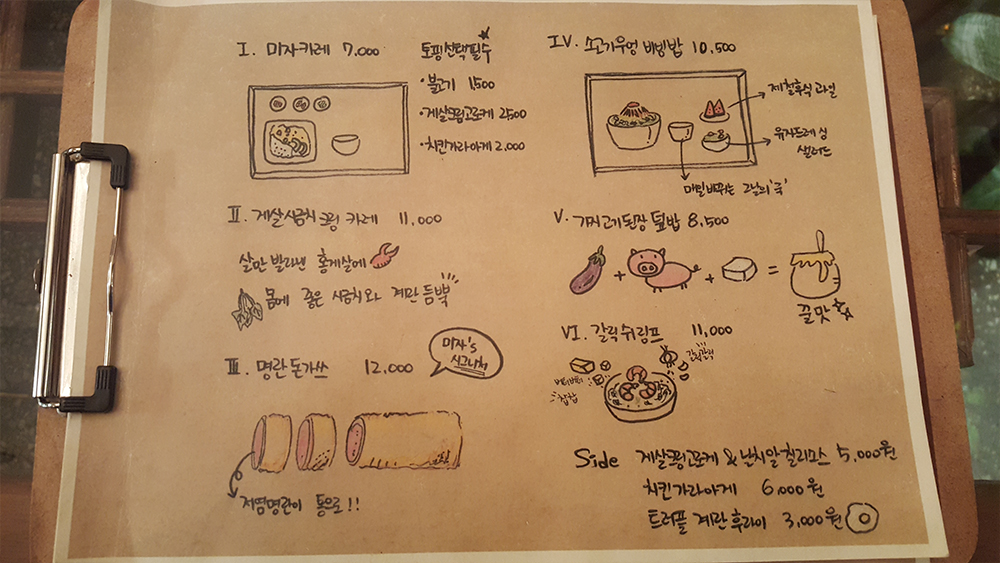 I. 미자카레 7,000
토핑선택필수
·불고기 1,500
·게살크림고로케 2500
·치킨가라아게 2,000
II. 게살시금치크림 카레 11,000
살만 발라낸 홍게살에
몸에 좋은 시금치와 계란 듬뿍
III. 명란돈가쓰 12,000
미자's
시그니처
저염명란이 통으로!!
IV. 소고기우엉 비빔밥 10,500
제철후식 과일
유자드레싱
샐러드
매일바뀌는 그날의 '국'
V. 가지고기된장 덮밥 8,500
+ + =
꿀맛
VI. 갈릭쉬림프 11,000
Side 게살크림고로케 & 날치알칠리소스 5,000원
치킨가라아게 6,000원
트러플 계란후라이 3,000원